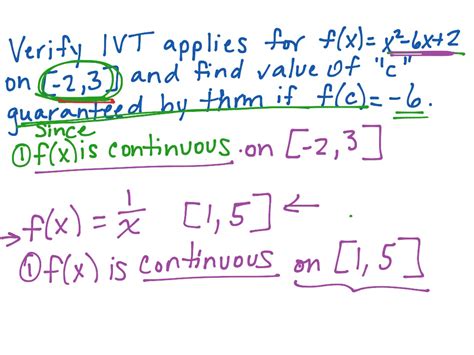 Verify IVT applies for f(x)= x²-6x+2
on [-2,3] and find value of "c"
guaranteed by thrm if f(c)= -6.
Since
① f(x) is continuous on [-2,3]
→ f(x) = 1/x [1,5] ←
① f(x) is continuous on [1,5]